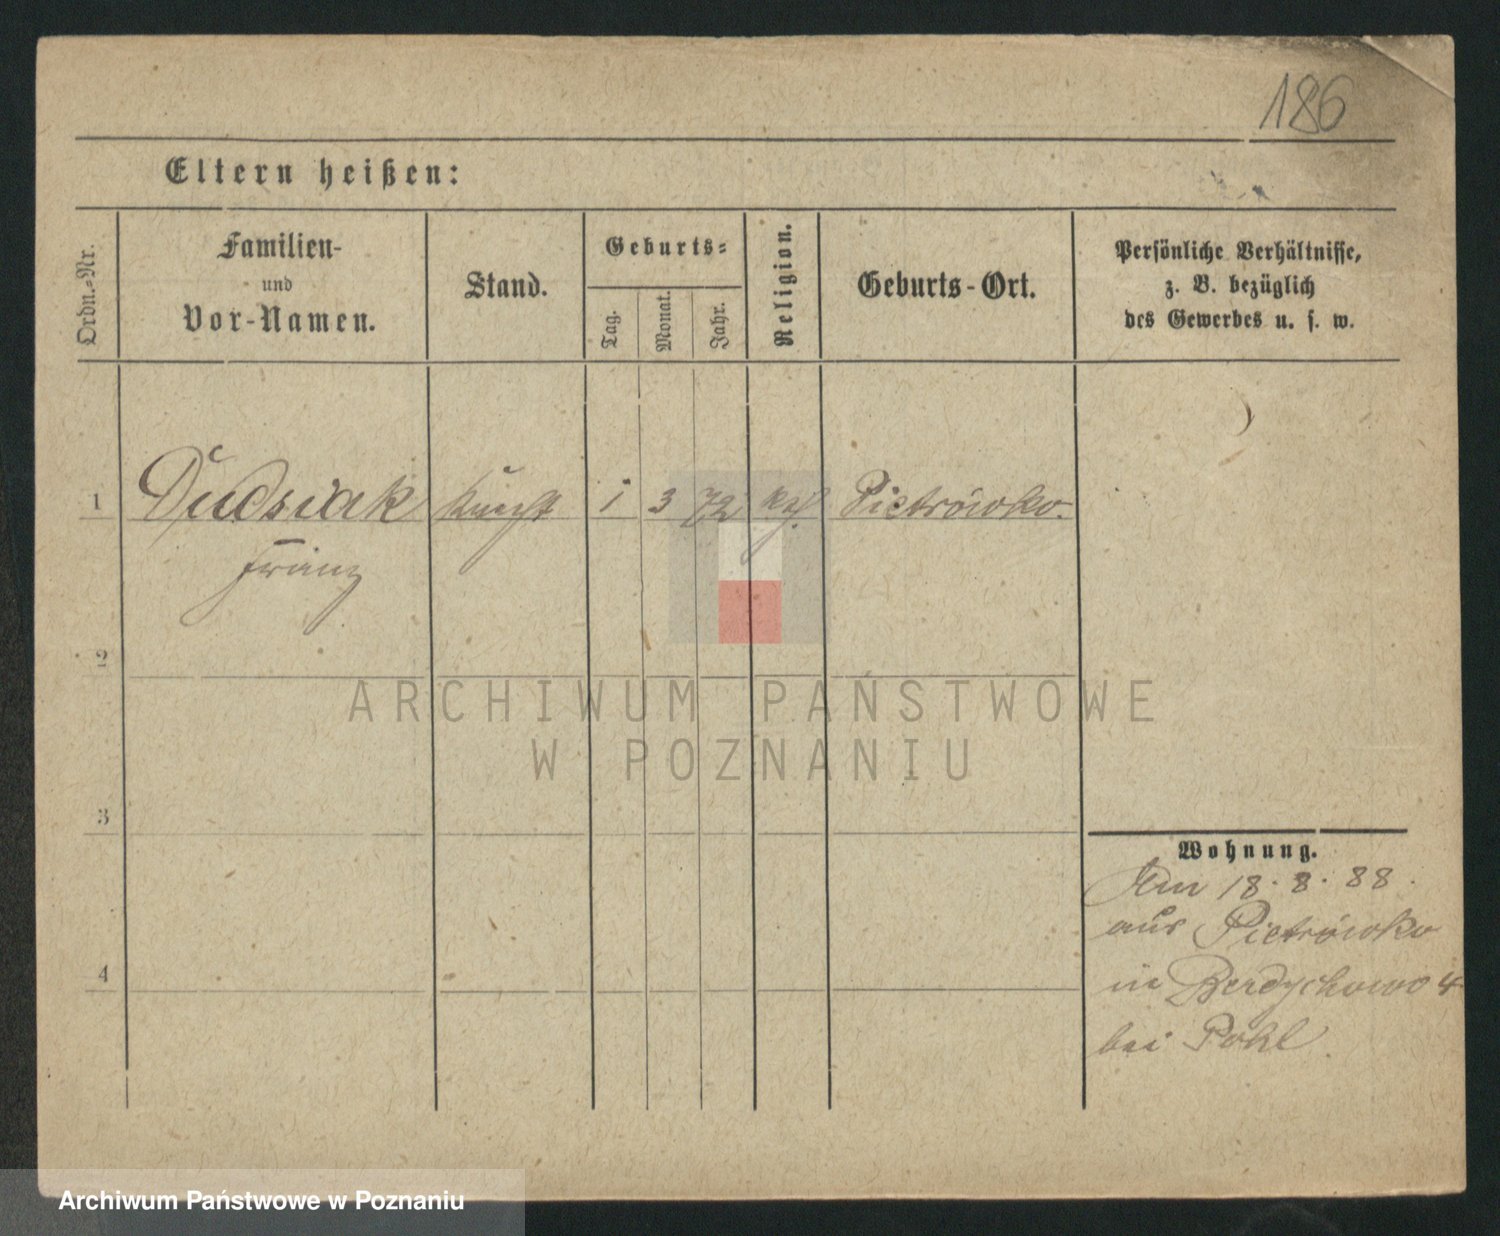 186
Eltern heißen:
Ordn.-Nr.
Familien-
und
Vor-Namen.
Stand.
Geburts-
Tag.
Monat.
Jahr.
Religion.
Geburts-Ort.
Persönliche Verhältnisse,
z. B. bezüglich
des Gewerbes u. s. w.
1 Dudsiak 1 3 72 Pietrówko.
Franz
2
ARCHIWUM PAŃSTWOWE
W POZNANIU
3
Wohnung.
Am 18.8.88.
aus Pietrówko
4
in Berdychowo 4
bei Pohl.
Archiwum Państwowe w Poznaniu